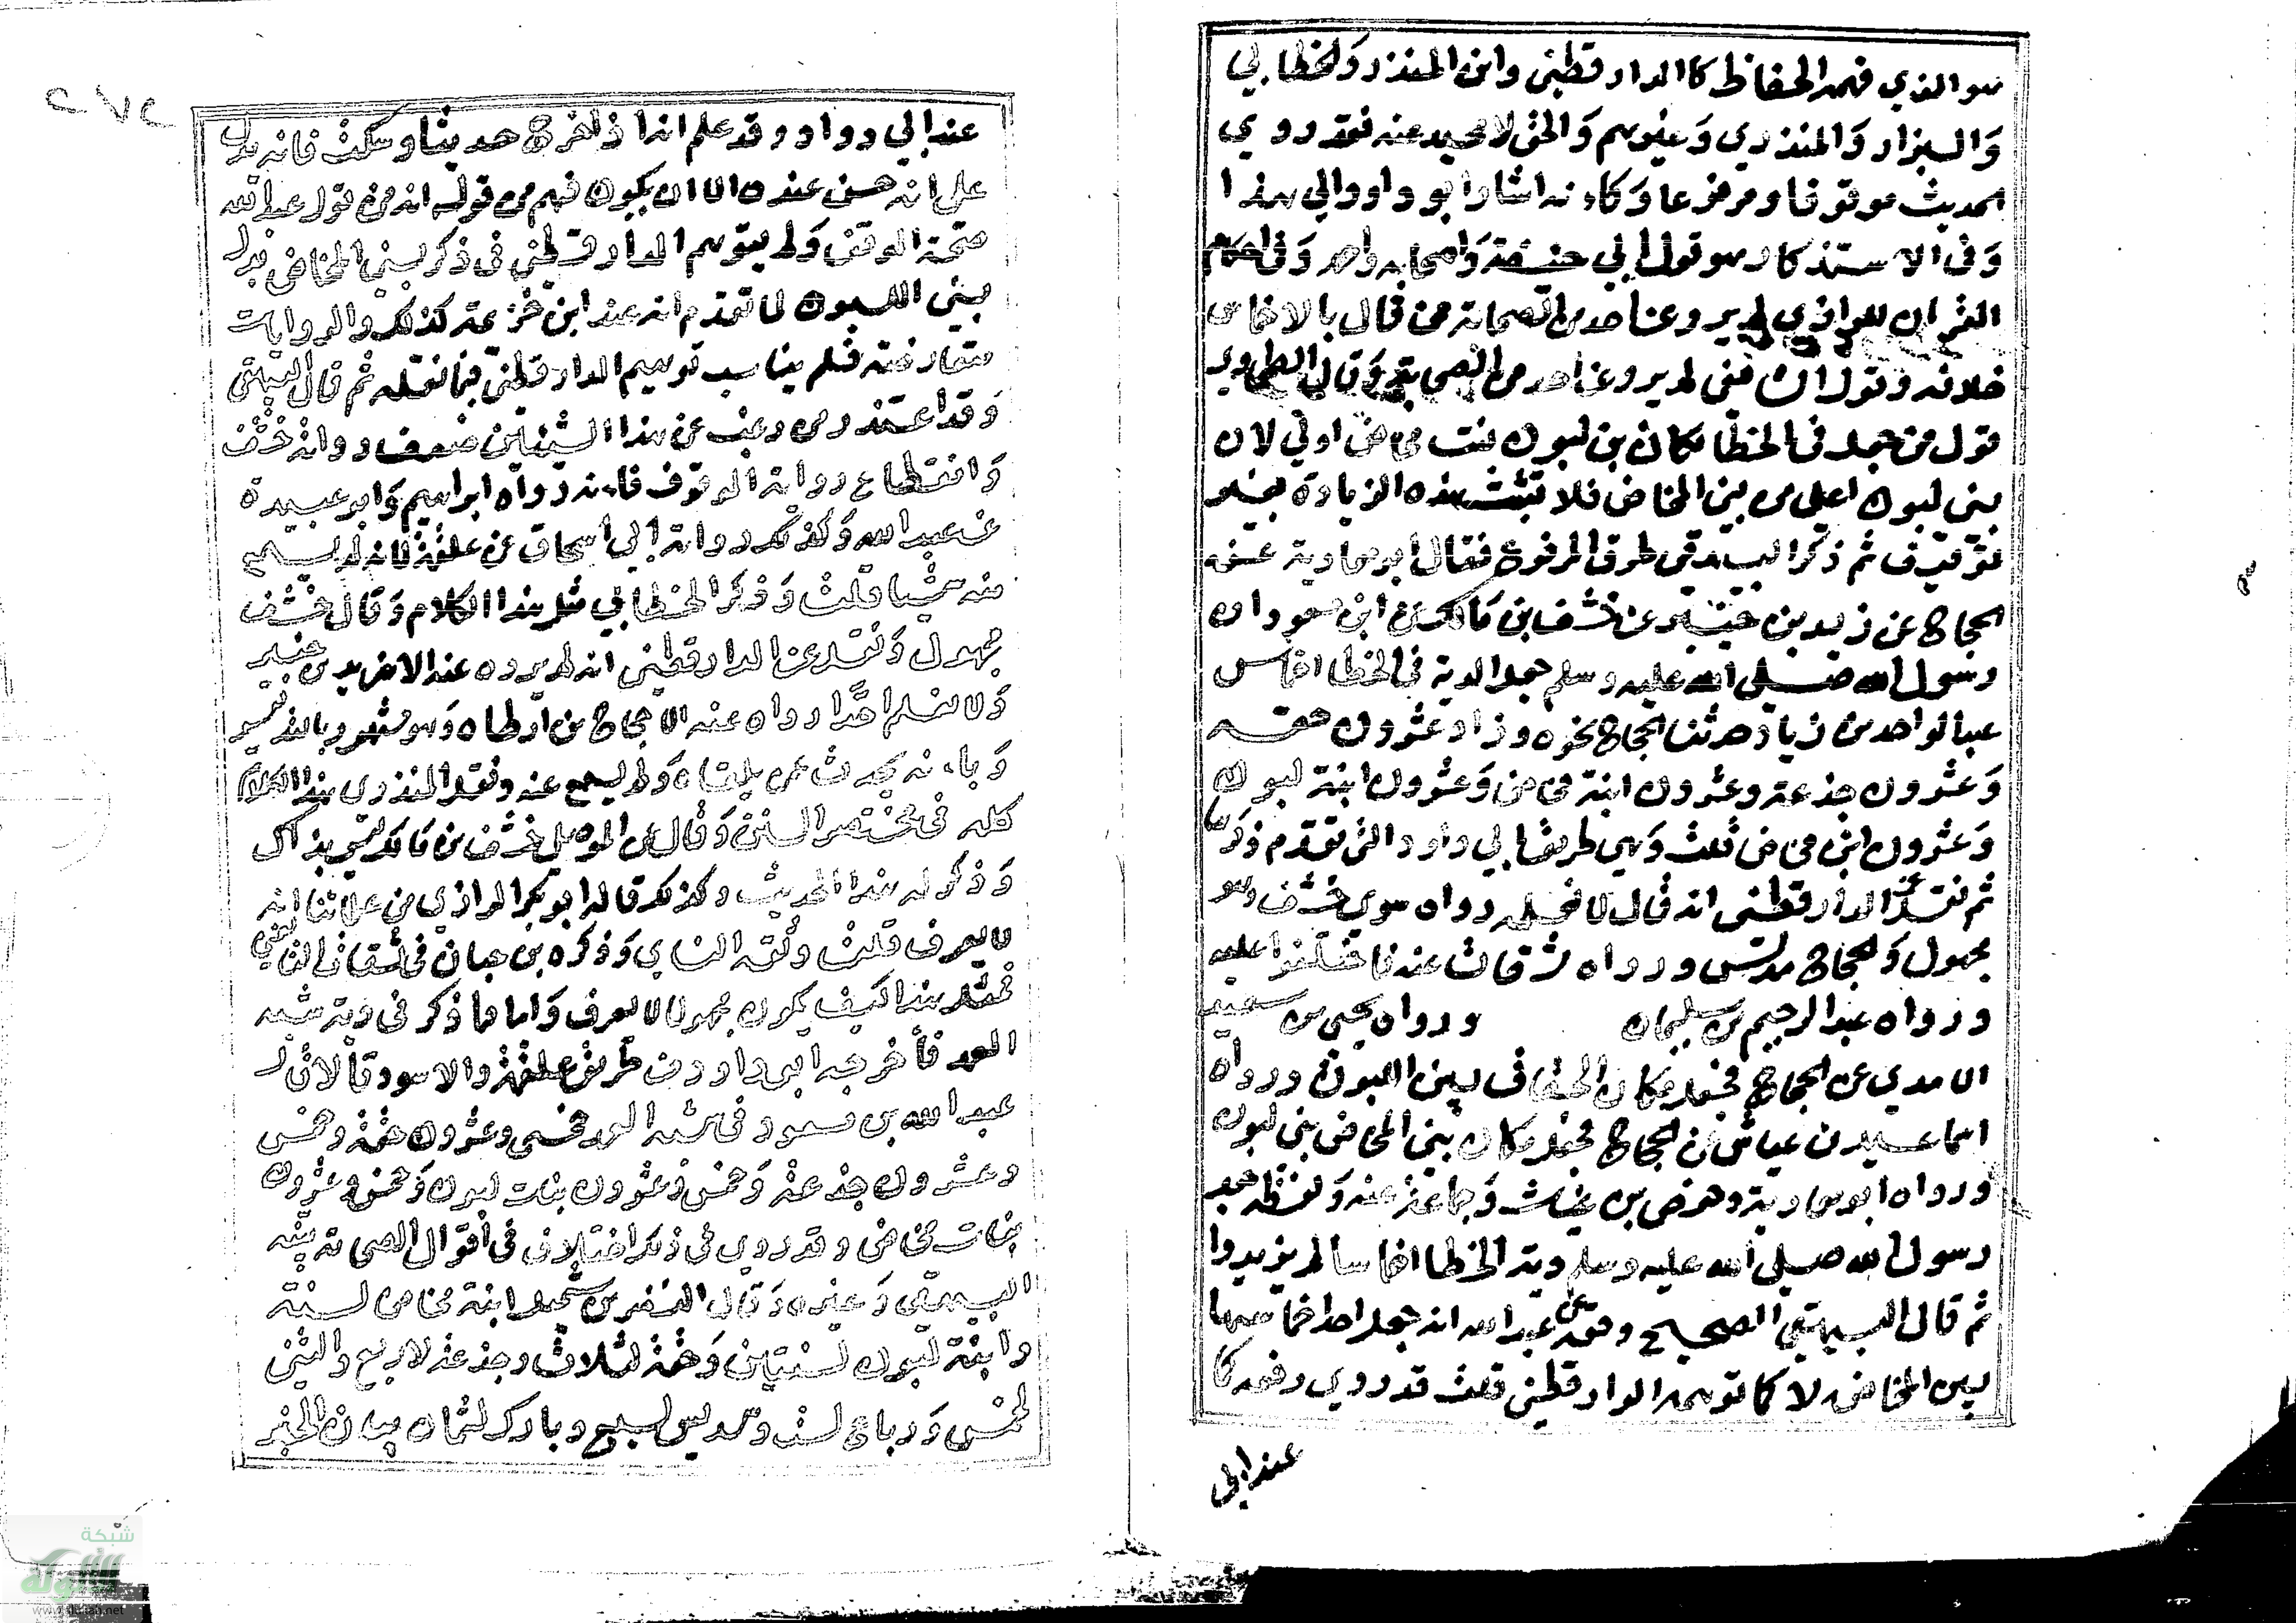 هو الذي فهمه الحفاظ كالدارقطني وابن المنذر والخطابي
والبزار والمنذري وغيرهم والحق لا محيد عنه فقد روي
الحديث موقوفا ومرفوعا وكانه اشار ابو داود الي هذا
وفي الاستذكار هو قول ابي حنيفة واصحابه واحمد وفي احكام
القران للرازي لم يرو عن احد من الصحابة ممن قال بالاخماس
خلافه وقول الشافعي لم يرو عن احد من الصحابة وقال الطحاوي
قول من جعل في الخطا مكان بن لبون بنت مخاض اولي لان
بني لبون اعلي من بني المخاض فلا تثبت هذه الزيادة بغير
توقيف ثم ذكر البيهقي طرق المرفوع فقال ابو معاوية عن
الحجاج عن زيد بن جبير عن خشف بن مالك عن ابن مسعود ان
رسول الله صلي الله عليه وسلم جعل الدية في الخطا اخماس
عبد الواحد بن زياد حدثنا الحجاج نحوه وزاد عشرون حقة
وعشرون جذعة وعشرون ابنة مخاض وعشرون ابنة لبون
وعشرون ابن مخاض قلت وهي طريق ابي داود التي تقدم ذكرها
ثم نقل عن الدارقطني انه قال لا نعلم رواه سوي خشف وهو
مجهول والحجاج مدلس ورواه ثقات عنه فاختلفوا عليه
ورواه عبد الرحيم بن سليمان ورواه يحيى بن سعيد
الامدي عن الحجاج فجعل مكان الحقاق بني اللبون ورواه
اسماعيل بن عياش عن الحجاج فجعل مكان بني المخاض بني لبون
ورواه ابو معاوية وحفص بن غياث وجماعة عنه ولفظه جعل
رسول الله صلي الله عليه وسلم دية الخطا اخماسا لم يزيدوا
ثم قال البيهقي الصحيح وقفه عن عبد الله انه جعل احد اخماسها
بني المخاض لا كما توهمه الدارقطني قلت قد روي رفعه كما
عند ابي
٢٧٢
عند ابي دواود وقد علم انه اذا خرج حديثا وسكت فانه يدل
علي انه حسن عنده الا ان يكون فهم من قوله انه من قول عبد الله
صحة الوقف ولم يتوهم الدارقطني في ذكر بني المخاض بدل
بني اللبون لما تقدم انه عند ابن خزيمة كذلك والروايات
متعارضة فلم يناسب توهيم الدارقطني فيما نقله ثم قال البيهقي
وقد اعتذر من رغب عن هذا الشيئين ضعف رواية خشف
وانقطاع رواية الموقوف فانه رواه ابراهيم وابو عبيدة
عن عبد الله وكذلك رواية ابي اسحاق عن علقمة فانه لم يسمع
منه شيا قلت وذكر الخطابي مثل هذا الكلام وقال خشف
مجهول ونقل عن الدارقطني انه لم يروه عنه الا زيد بن جبير
ولا نعلم احدا رواه عنه الا حجاج بن ارطاه وهو مشهور بالتدليس
وبانه يحدث عن من يلقاه ولم يسمع عنه ونقل المنذري هذا الكلام
كله في مختصر السنن وقال عن الموصلي خشف بن مالك ليس بذاك
وذكر له هذا الحديث وكذلك قاله ابو بكر الرازي من علمائنا انه
لا يعرف قلت وثقه النساي وذكره بن حبان في ثقات التابعين
فمثل هذا كيف يكون مجهولا لا يعرف واما ما ذكر في دية شبه
العمد فأخرجه ابو داود من طريق علقمة والاسود قالا قال
عبد الله بن مسعود في شبه العمد خمس وعشرون حقة وخمس
وعشرون جذعة وخمس وعشرون بنات لبون وخمس وعشرون
بنات مخاض وقد روي في ذلك اختلاف في اقوال الصحابة بينه
البيهقي وغيره وقال النضر بن شميل ابنة مخاض لسنة
وابنة لبون لسنتين وحقة لثلاث وجذعة لاربع والثني
لخمس ورباع لست وسديس لسبع وبازل لثمان بيان الخبر
شبكة
الألوكة
www.alukah.net